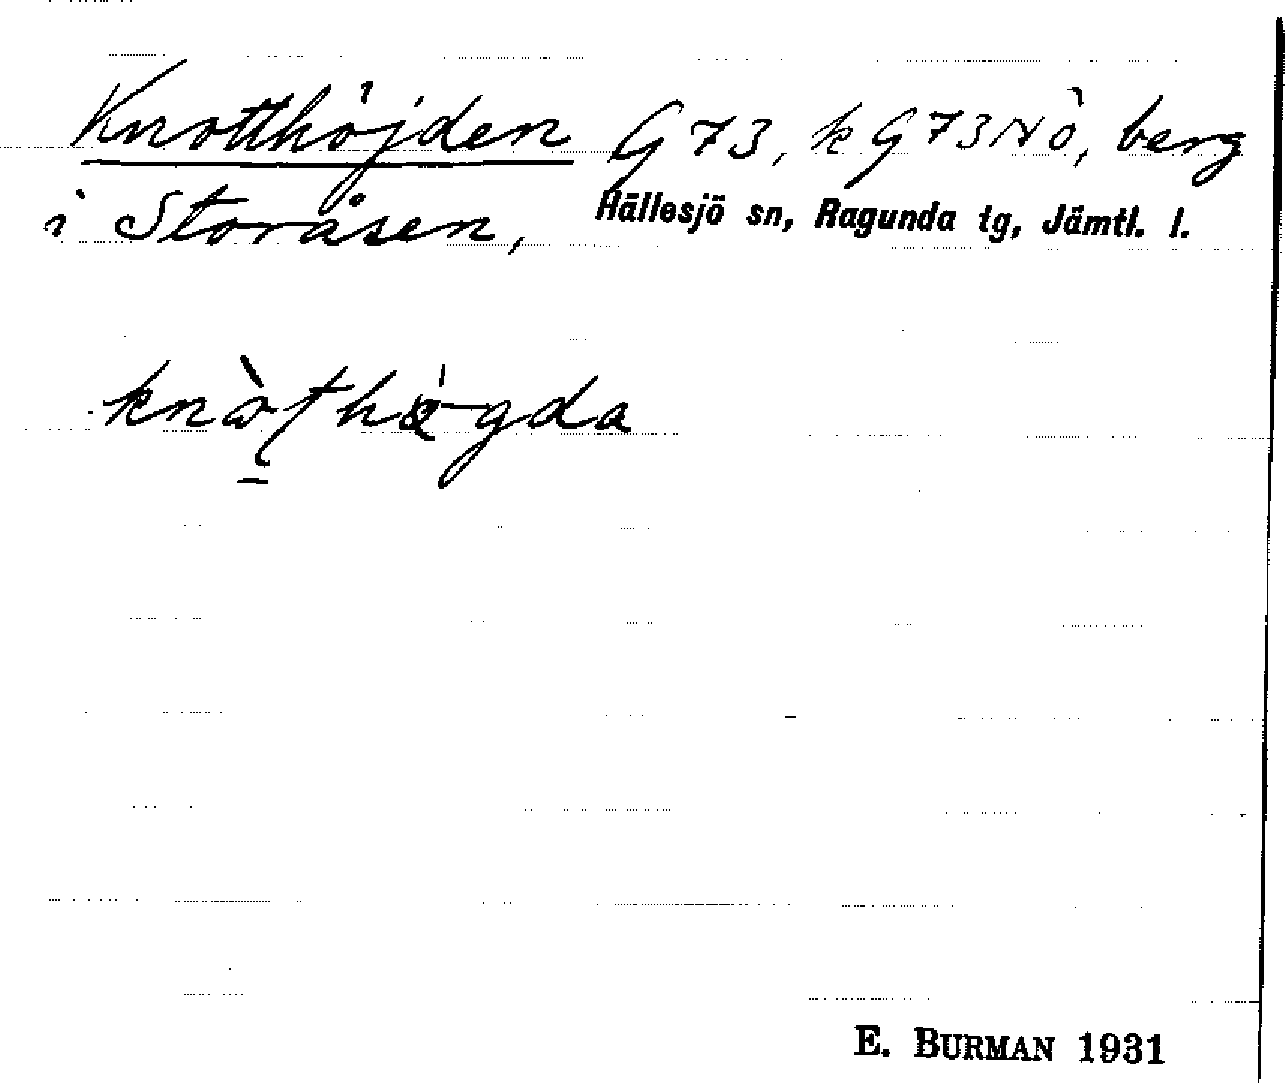 Knotthöjden G 73, k G 73 NÖ, berg
i Storåsen, Hällesjö sn, Ragunda tg, Jämtl. l.
E. BURMAN 1931